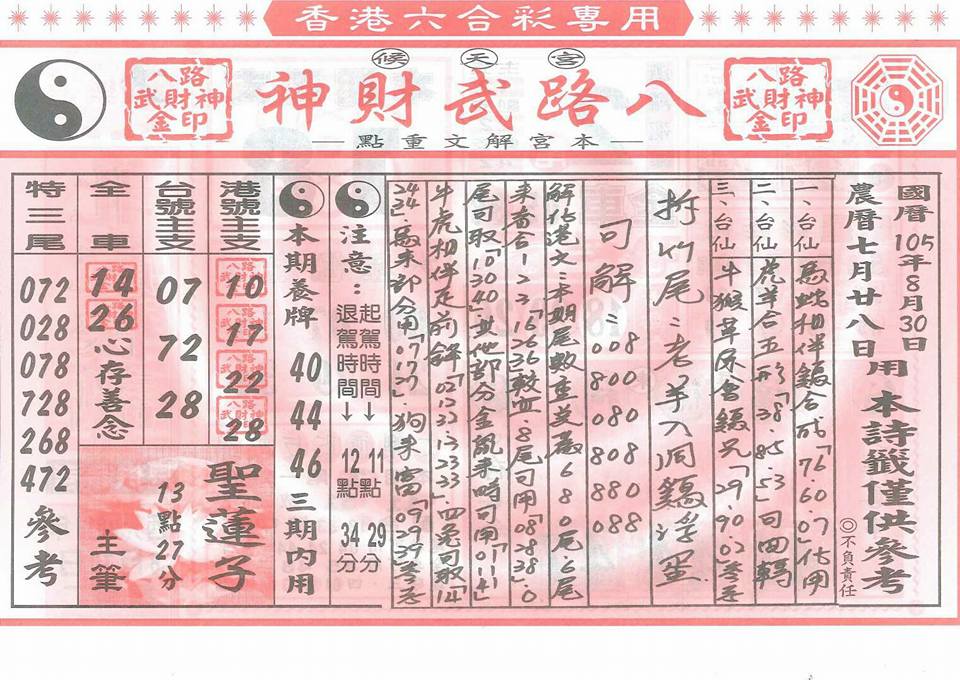 香港六合彩專用
候天宮
八路武財神
八路
武財神
金印
八路
武財神
金印
本宮解文重點
國曆105年8月30日
農曆七月廿八日用
本詩籤僅供參考
◎不負責任
一、台仙 馬蛇相伴鷄合成「76.60.07」代用
二、台仙 虎羊合五形「38.85.53」可四轉
三、台仙 牛猴草原會鷄兄「29.90.02」參考
拆竹尾:老羊入洞鷄浮蛋.
可解:008 800 080 808 880 088
解佔港文:本期尾數查美為680尾.6尾
來看合123「162636」.8尾可用「082838」.0
尾可取「103040」其他部分金鼠來時可用「0141」
牛虎相伴走前解「0232132333」四兔可取「14
2434」.馬來部分用「071727」.狗來富「092939」參考
注意:
起駕時間↓11點29分
退駕時間↓12點34分
本期養牌 40 44 46 三期內用
港號主支
10
17
22
28
台號主支
07
72
28
全車
14
26
心存善念
特三尾
072
028
078
728
268
472
參考
聖蓮子
13點27分
主筆